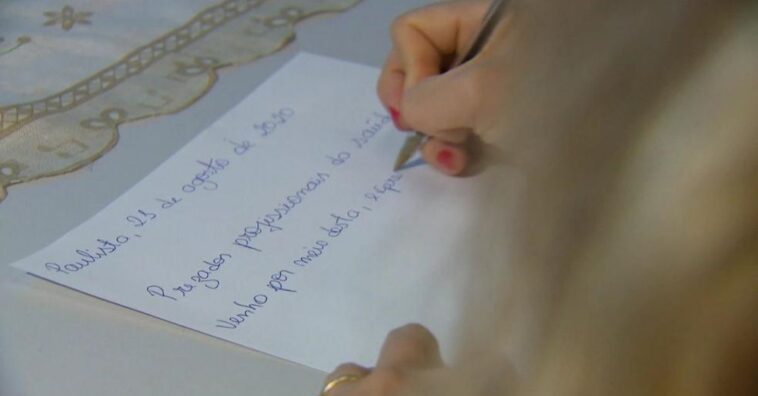 Paulista, 25 de agosto de 2020
Prezados profissionais da saúde
Venho por meio desta,